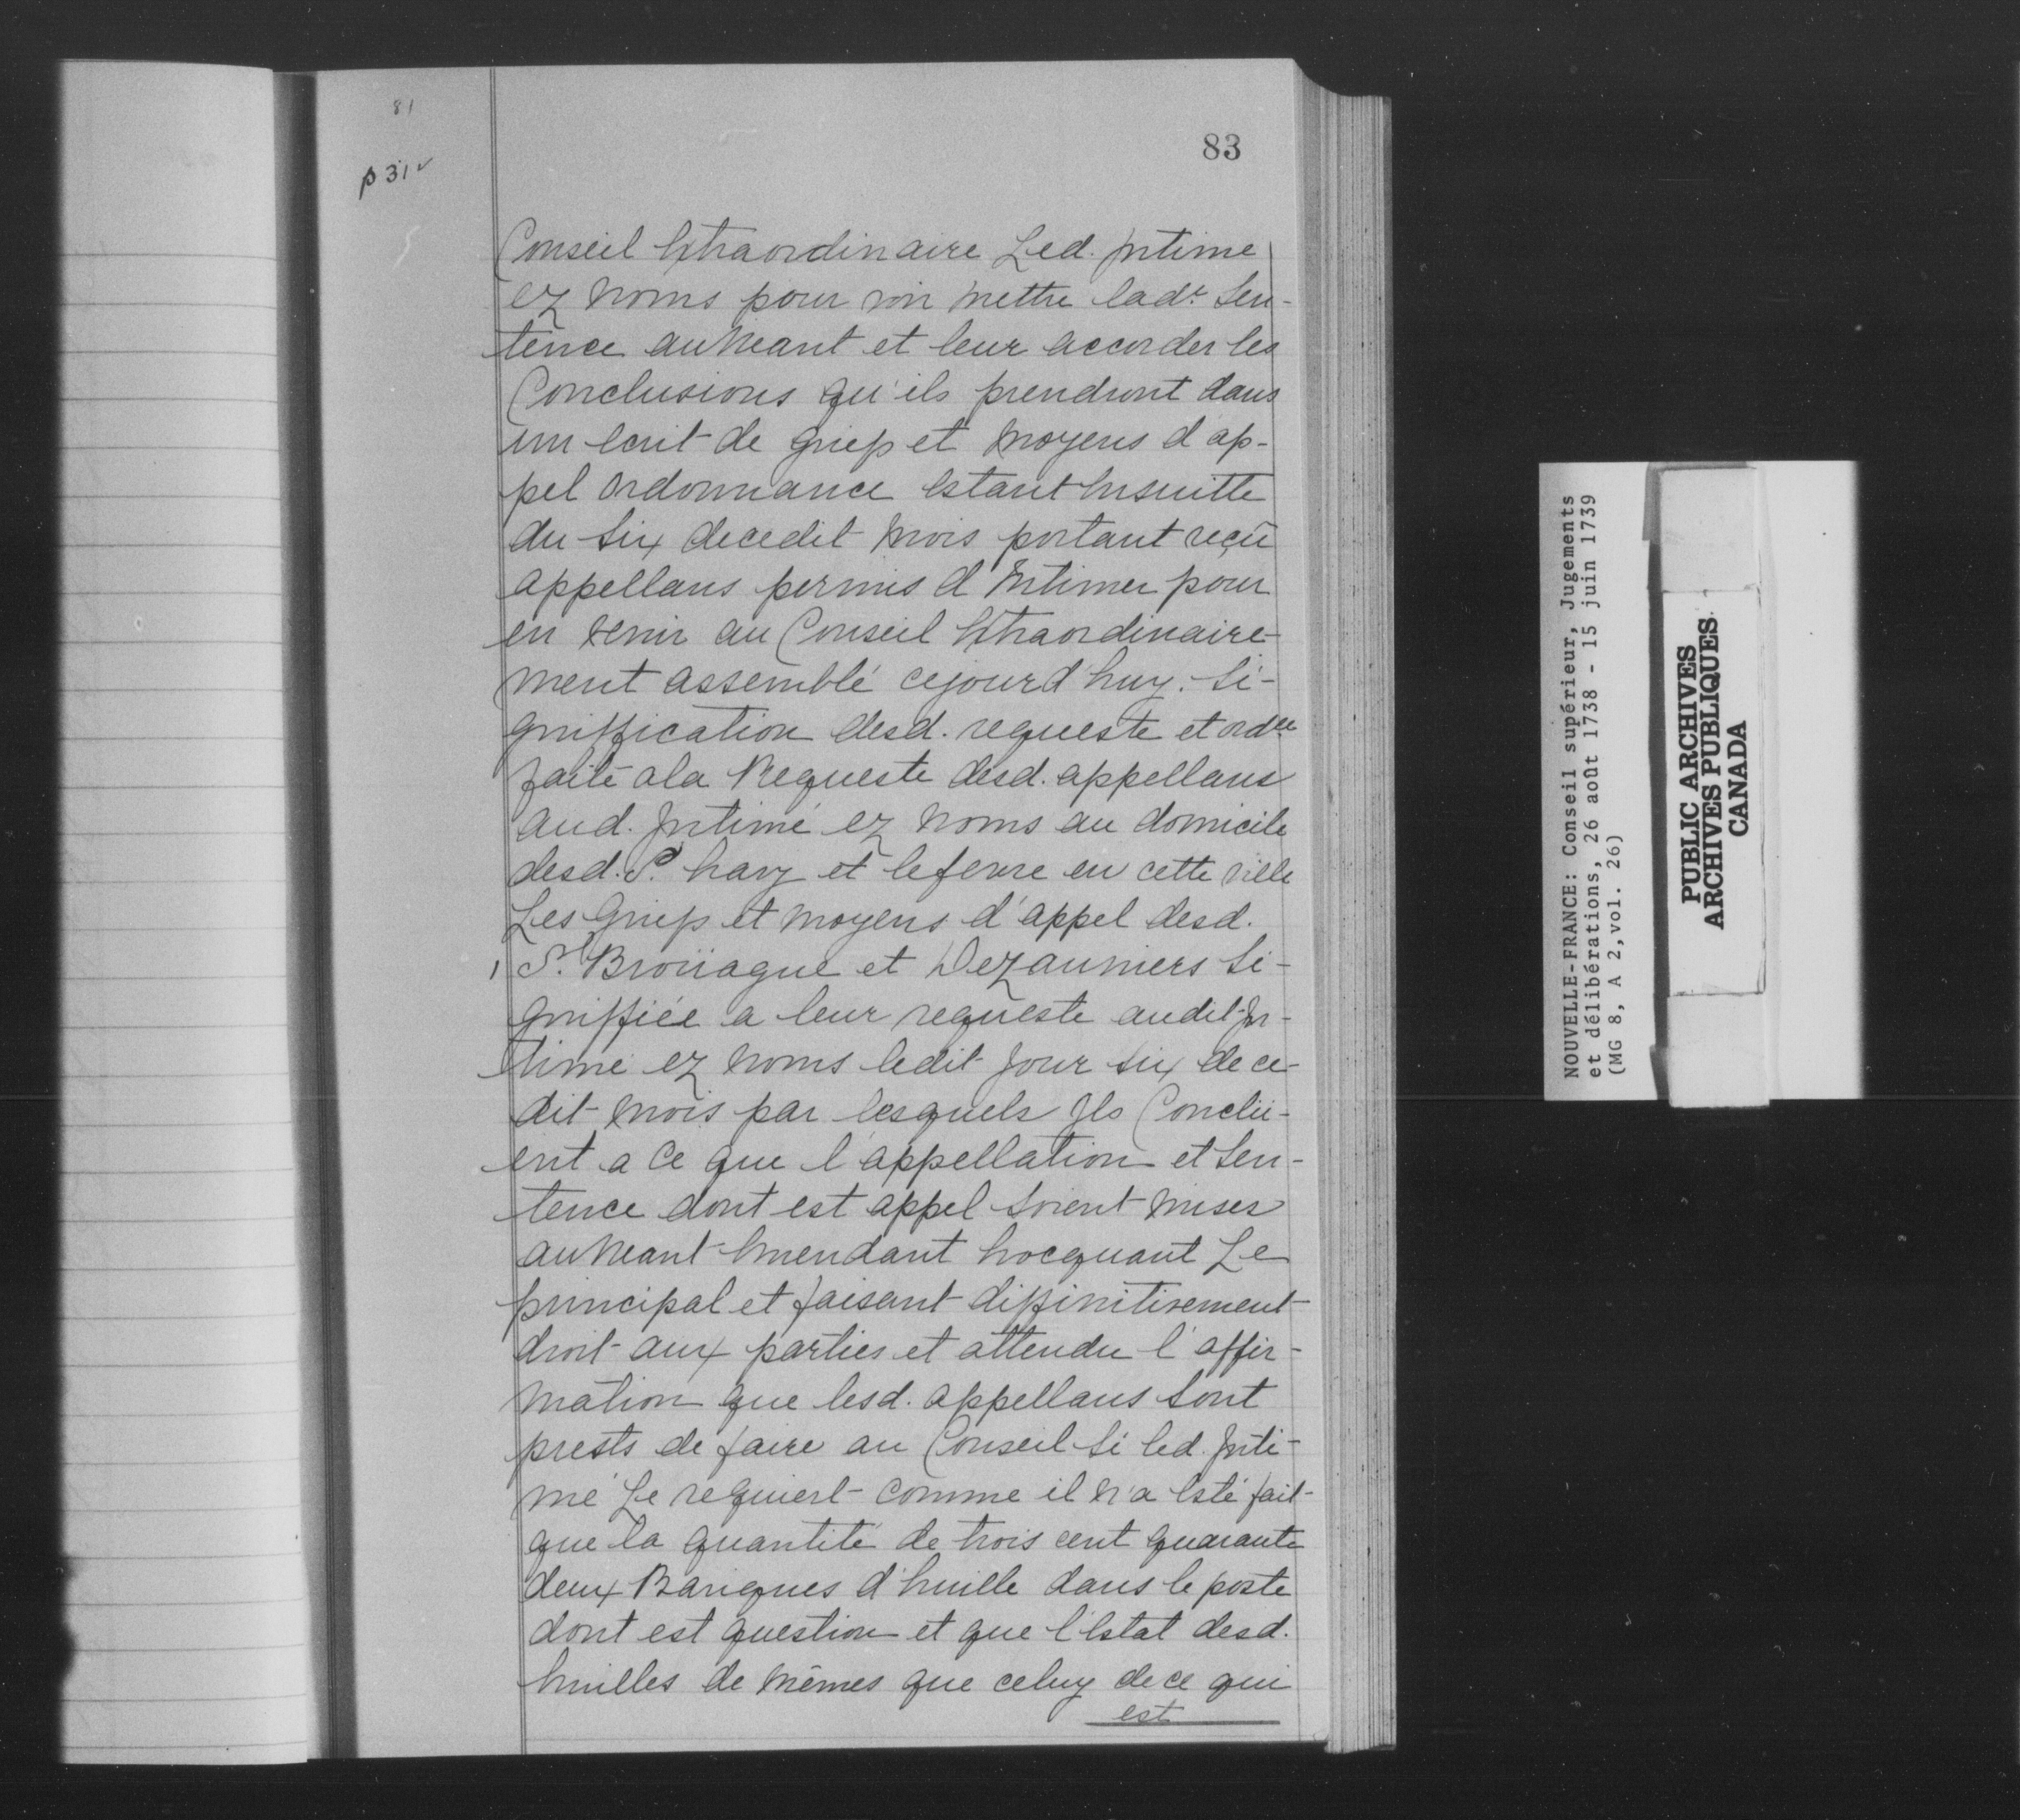 81
83
p 31 v
Conseil Extraordinaire Led. Intime
ez noms pour voir mettre lad.e Sen-
tence au Neant et leur accorder les
Conclusions qu'ils prendront dans
un Ecrit de griefs et moyens d'ap-
pel ordonnance Estant Ensuitte
du Six decedit mois portant reçû
appellans permis d'Intimer pour
en venir au Conseil Extraordinaire-
ment assemblé cejourd'huy. Si-
gniffication desd. requeste et ord.ce
faite ala Requeste desd. appellans
aud. Intimé ez noms au domicile
desd. S.rs havy et lefevre en cette ville
Les Griefs et moyens d'appel desd.
S.rs Broüague et Dezauniers Si-
gniffiée a leur requeste audit In-
timé ez noms ledit Jour Six de ce-
dit mois par lesquels Ils Conclü-
ent a Ce que l'appellation et Sen-
tence dont est appel Soient mises
au Neant Emendant Evocquant Le
principal et faisant diffinitivement
droit aux parties et attendu l'affir-
mation que lesd. appellans Sont
prests de faire au Conseil Si led. Inti-
mé Le requiert comme il n'a Esté fait
que la quantité de trois cent quarante
deux Bariques d'huille dans le poste
dont est question et que l'Estat desd.
huilles de mêmes que celuy de ce qui
est
NOUVELLE-FRANCE: Conseil supérieur, Jugements
et délibérations, 26 août 1738 - 15 juin 1739
(MG 8, A 2,vol. 26)
PUBLIC ARCHIVES
ARCHIVES PUBLIQUES
CANADA